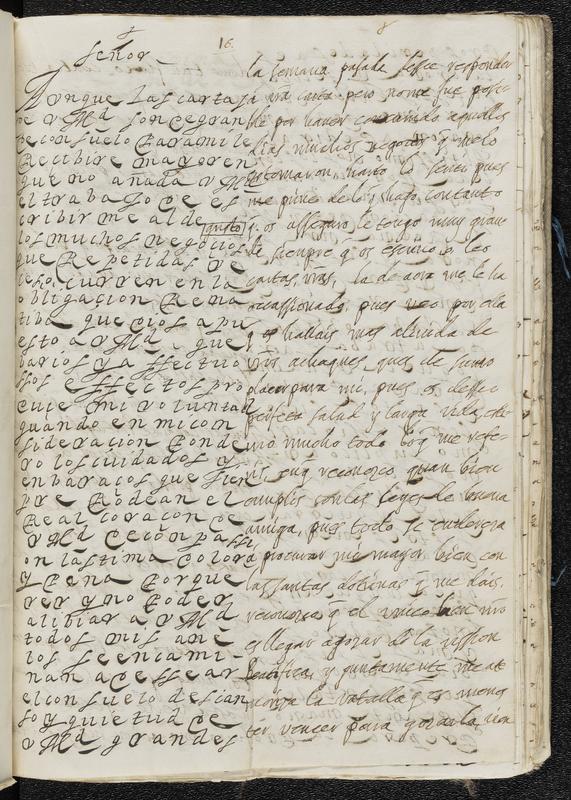 16.
8
Señor
Aunque las cartas
de v Md son de gran
de consuelo para mi le
Recibire mayor en
que no añada v Md
el trabajo de es
cribirme al de gusto
los muchos negocios
que Repetidas ve
ces ocurren en la
obligacion Rena
tiba que dios a pu
esto a v Md que
varios y a ffectuo
ssos effectos pro
duce mi voluntad
quando en mi con
sideracion ponde
ro los cuidados y
enbaraços que sien
pre Rodean el
Real coraçon de
v Md con
on lastima dolor
y Pena Porque
rer y no Poder
alibiar a v Md
todos mis ane
los se encami
nan a dessear
el consuelo descan
so y quietud de
v Md grandes
la semana pasada desee responder
a vra carta pero no me fue posi
ble por haver aquellos
dias muchos negocios q me lo
estorvaron, harto lo senti pues
me privé de lo q hago con tanto
q os asseguro le tengo muy gran
de siempre q os escrivo o leo
cartas vras, la de aora me le ha
ocassionado, pues veo por ella
q os hallais mas aliviada de
vros achaques, que es de sumo
placer para mi, pues os desseo
perfecta salud y larga vida,
mo mucho todo lo q me refe
ris en q reconozco quan bien
cumplis con las leyes de buena
amiga, pues todo se endereza
a procurar mi mayor bien con
las santas dotrinas q me dais,
reconozco q el unico bien mio
es llegar a gozar de la vission
beatifica, y juntamente me at
la vatalla q es menes
ter vencer para gozarla, bien